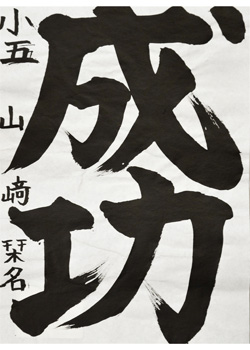 成功
小五 山﨑栞名